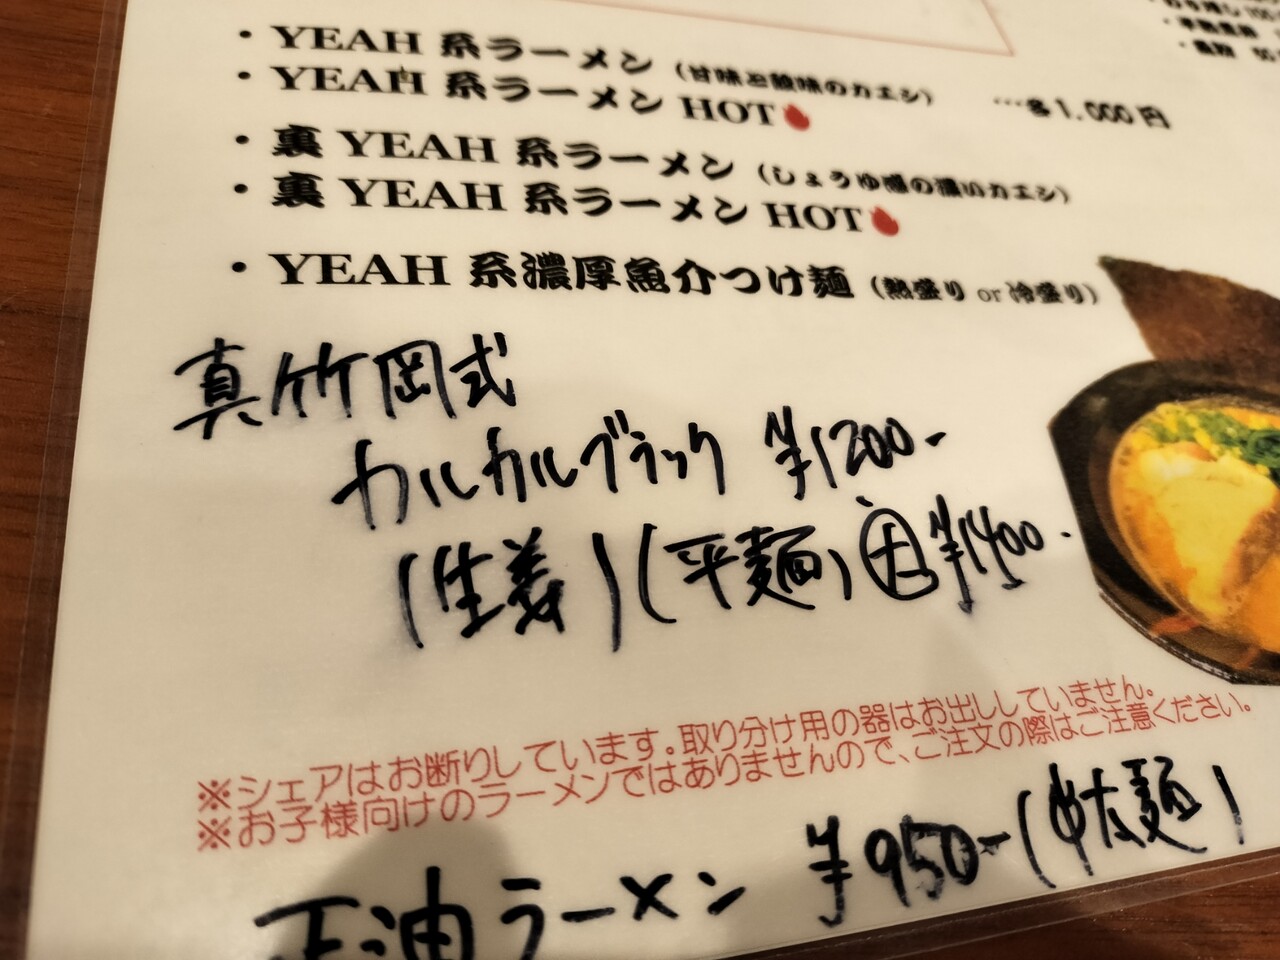 ・YEAH 系ラーメン（甘味と酸味のカエシ） …各1,000円
・YEAH 系ラーメン HOT
・裏 YEAH 系ラーメン（しょうゆ感の強いカエシ）
・裏 YEAH 系ラーメン HOT
・YEAH 系濃厚魚介つけ麺（熱盛り or 冷盛り）
真竹岡式
カルカルブラック ¥1200-
(生姜)(平麺) 大 ¥1400-
※シェアはお断りしています。取り分け用の器はお出ししていません。
※お子様向けのラーメンではありませんので、ご注文の際はご注意ください。
正油ラーメン ¥950-(中太麺)